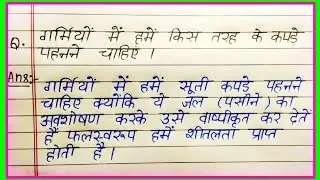 Q. गर्मियों में हमें किस तरह के कपड़े
पहनने चाहिए ।
Ans:- गर्मियों में हमें सूती कपड़े पहनने
चाहिए क्योंकि ये जल (पसीने) का
अवशोषण करके उसे वाष्पीकृत कर देते
हैं फलस्वरूप हमें शीतलता प्राप्त
होती है ।